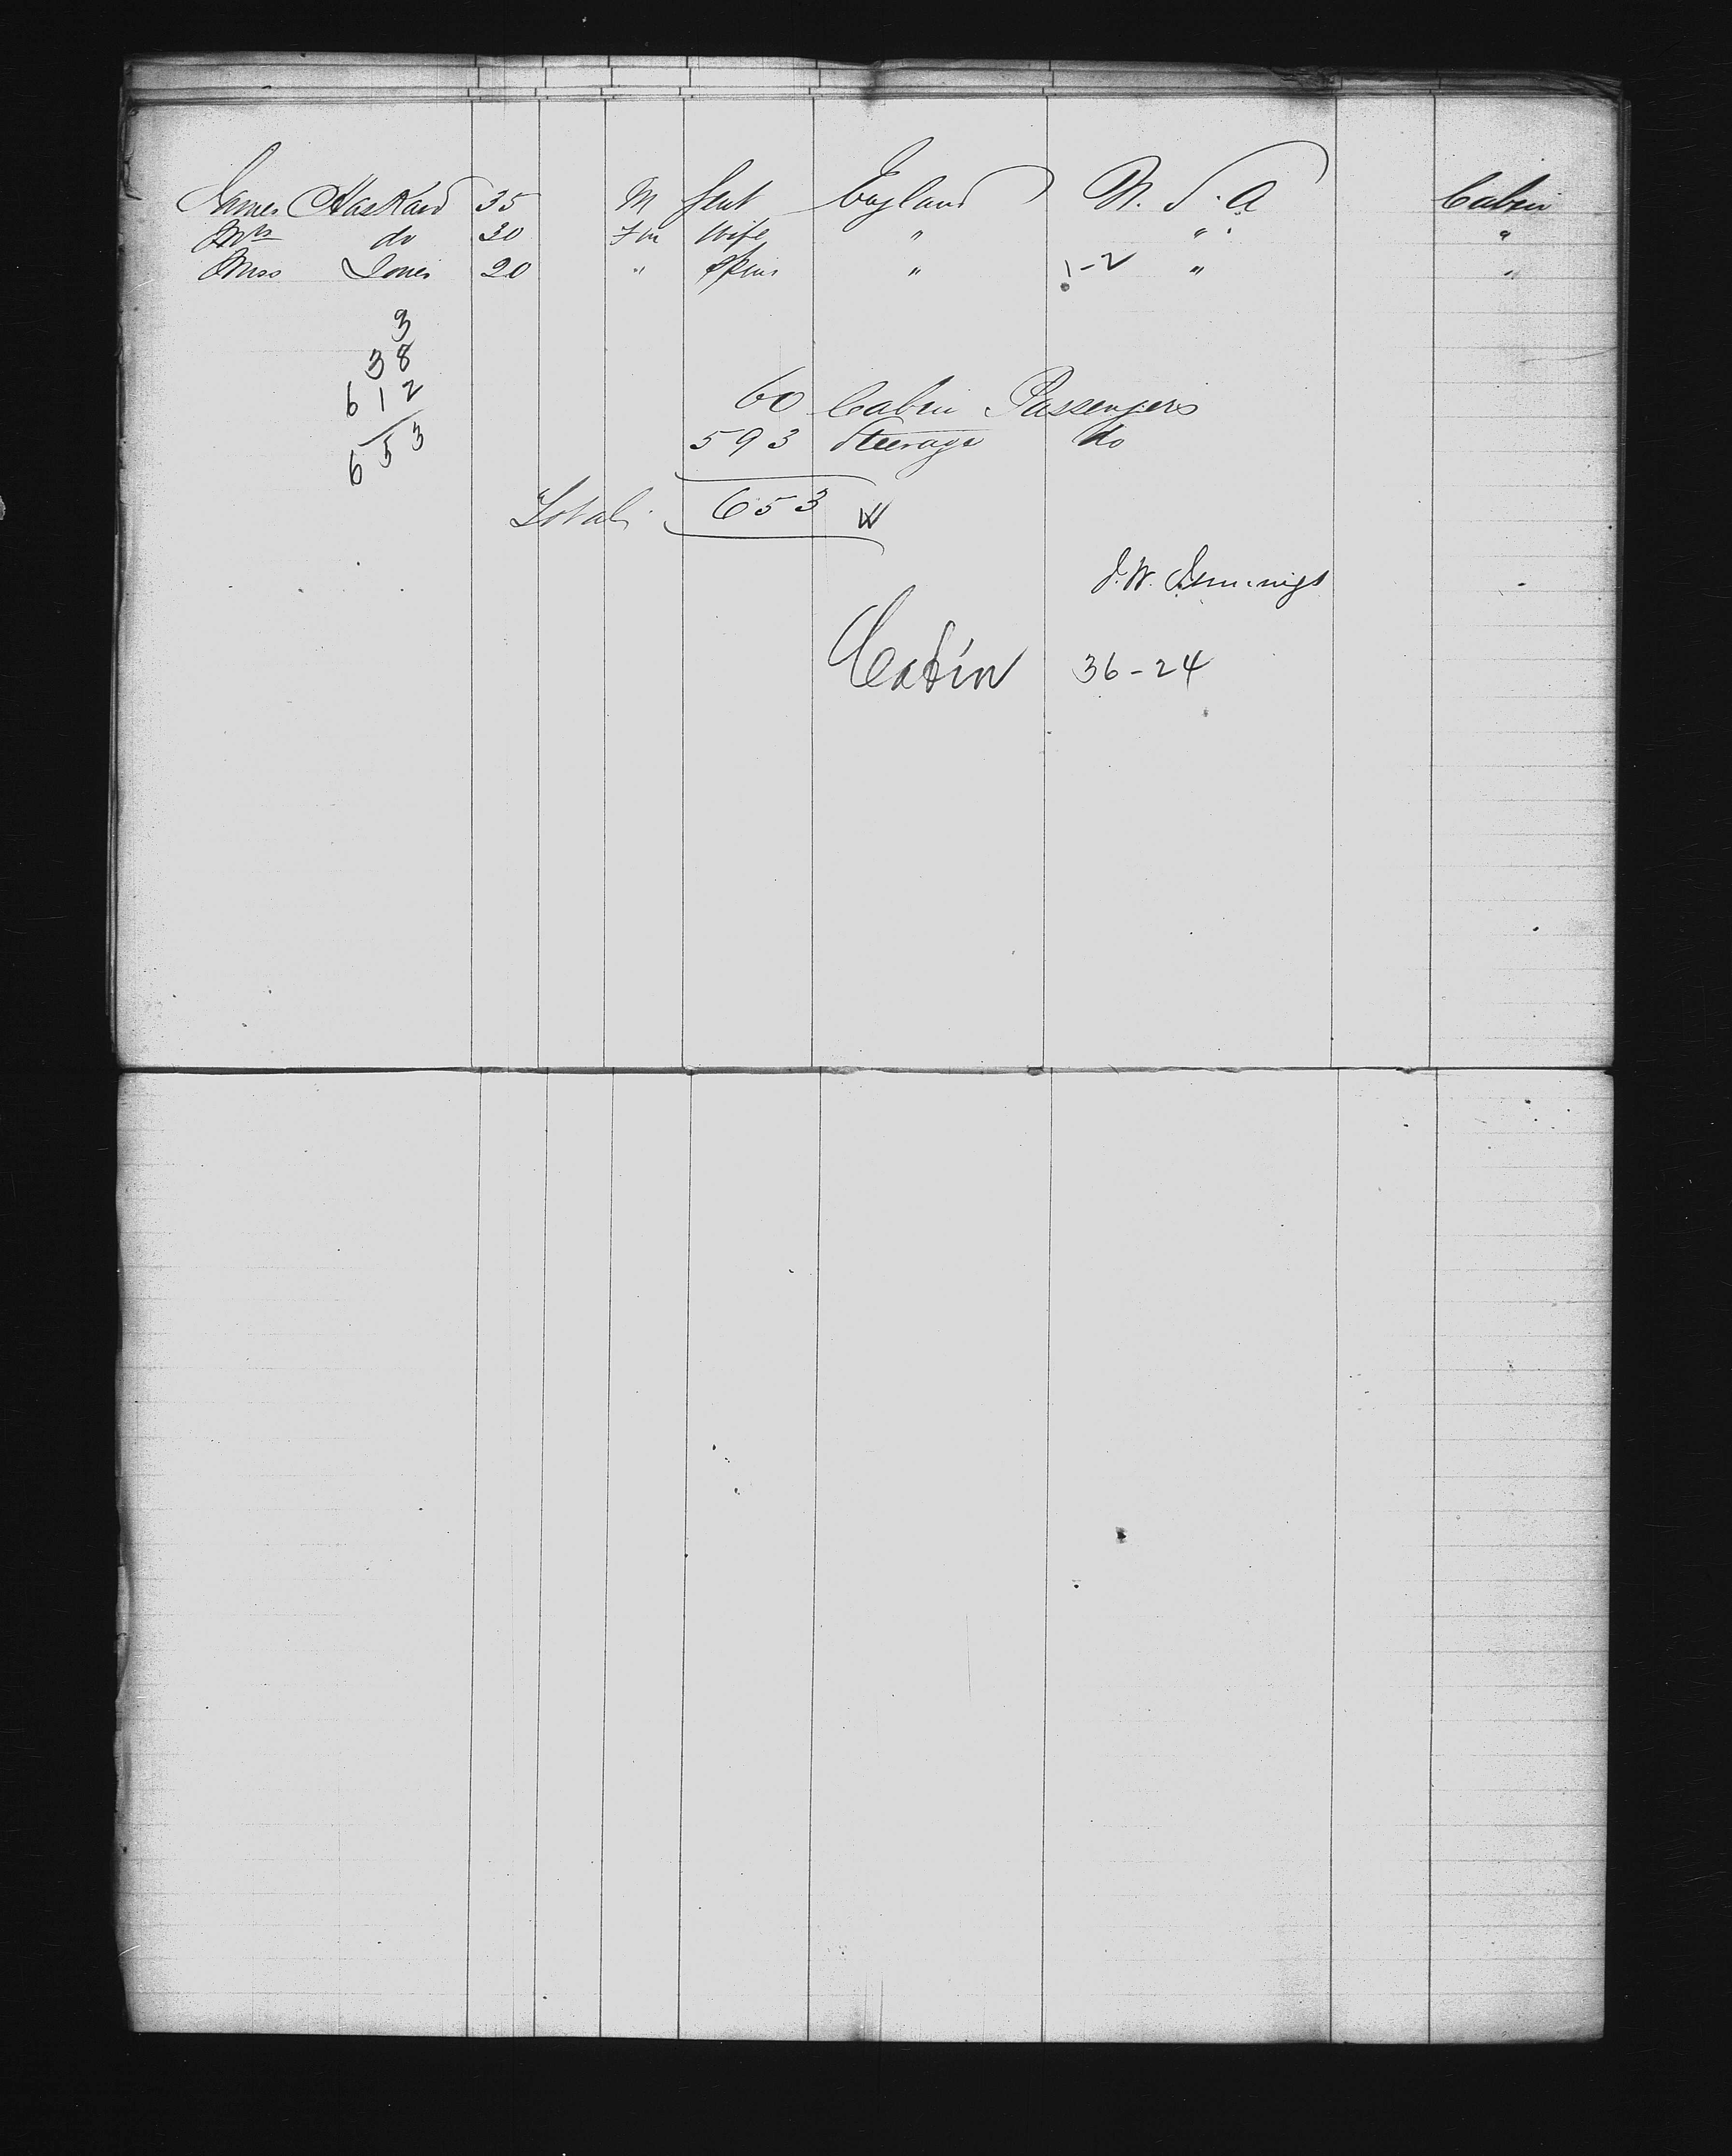 James Haskard 35 M Gent England U.S.A Cabin
Mrs do 30 Fm Wife " " "
Miss Jones 20 " Spins " 1-2 " "
3
38
612
653
60 Cabin Passengers
593 Steerage do
Total 653
J.W. Jennings
Cabin 36-24